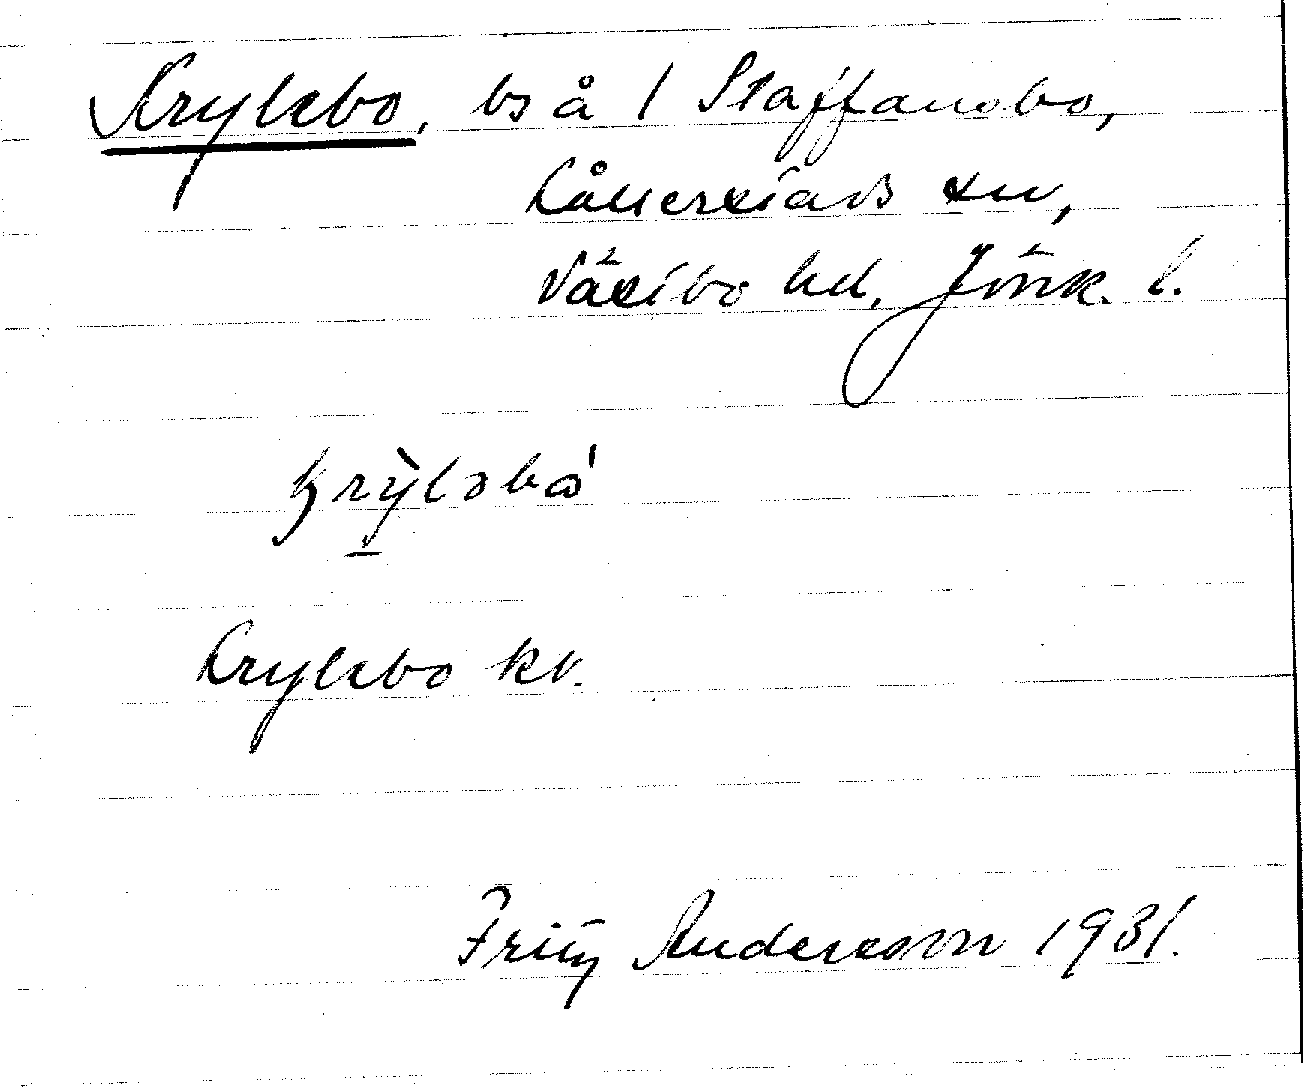 Krylebo, bs å 1 Staffansbo,
Kållerstads sn,
Västbo hd, Jönk. l.
krỳləbó
Krylebo kv.
Fritz Andersson 1931.